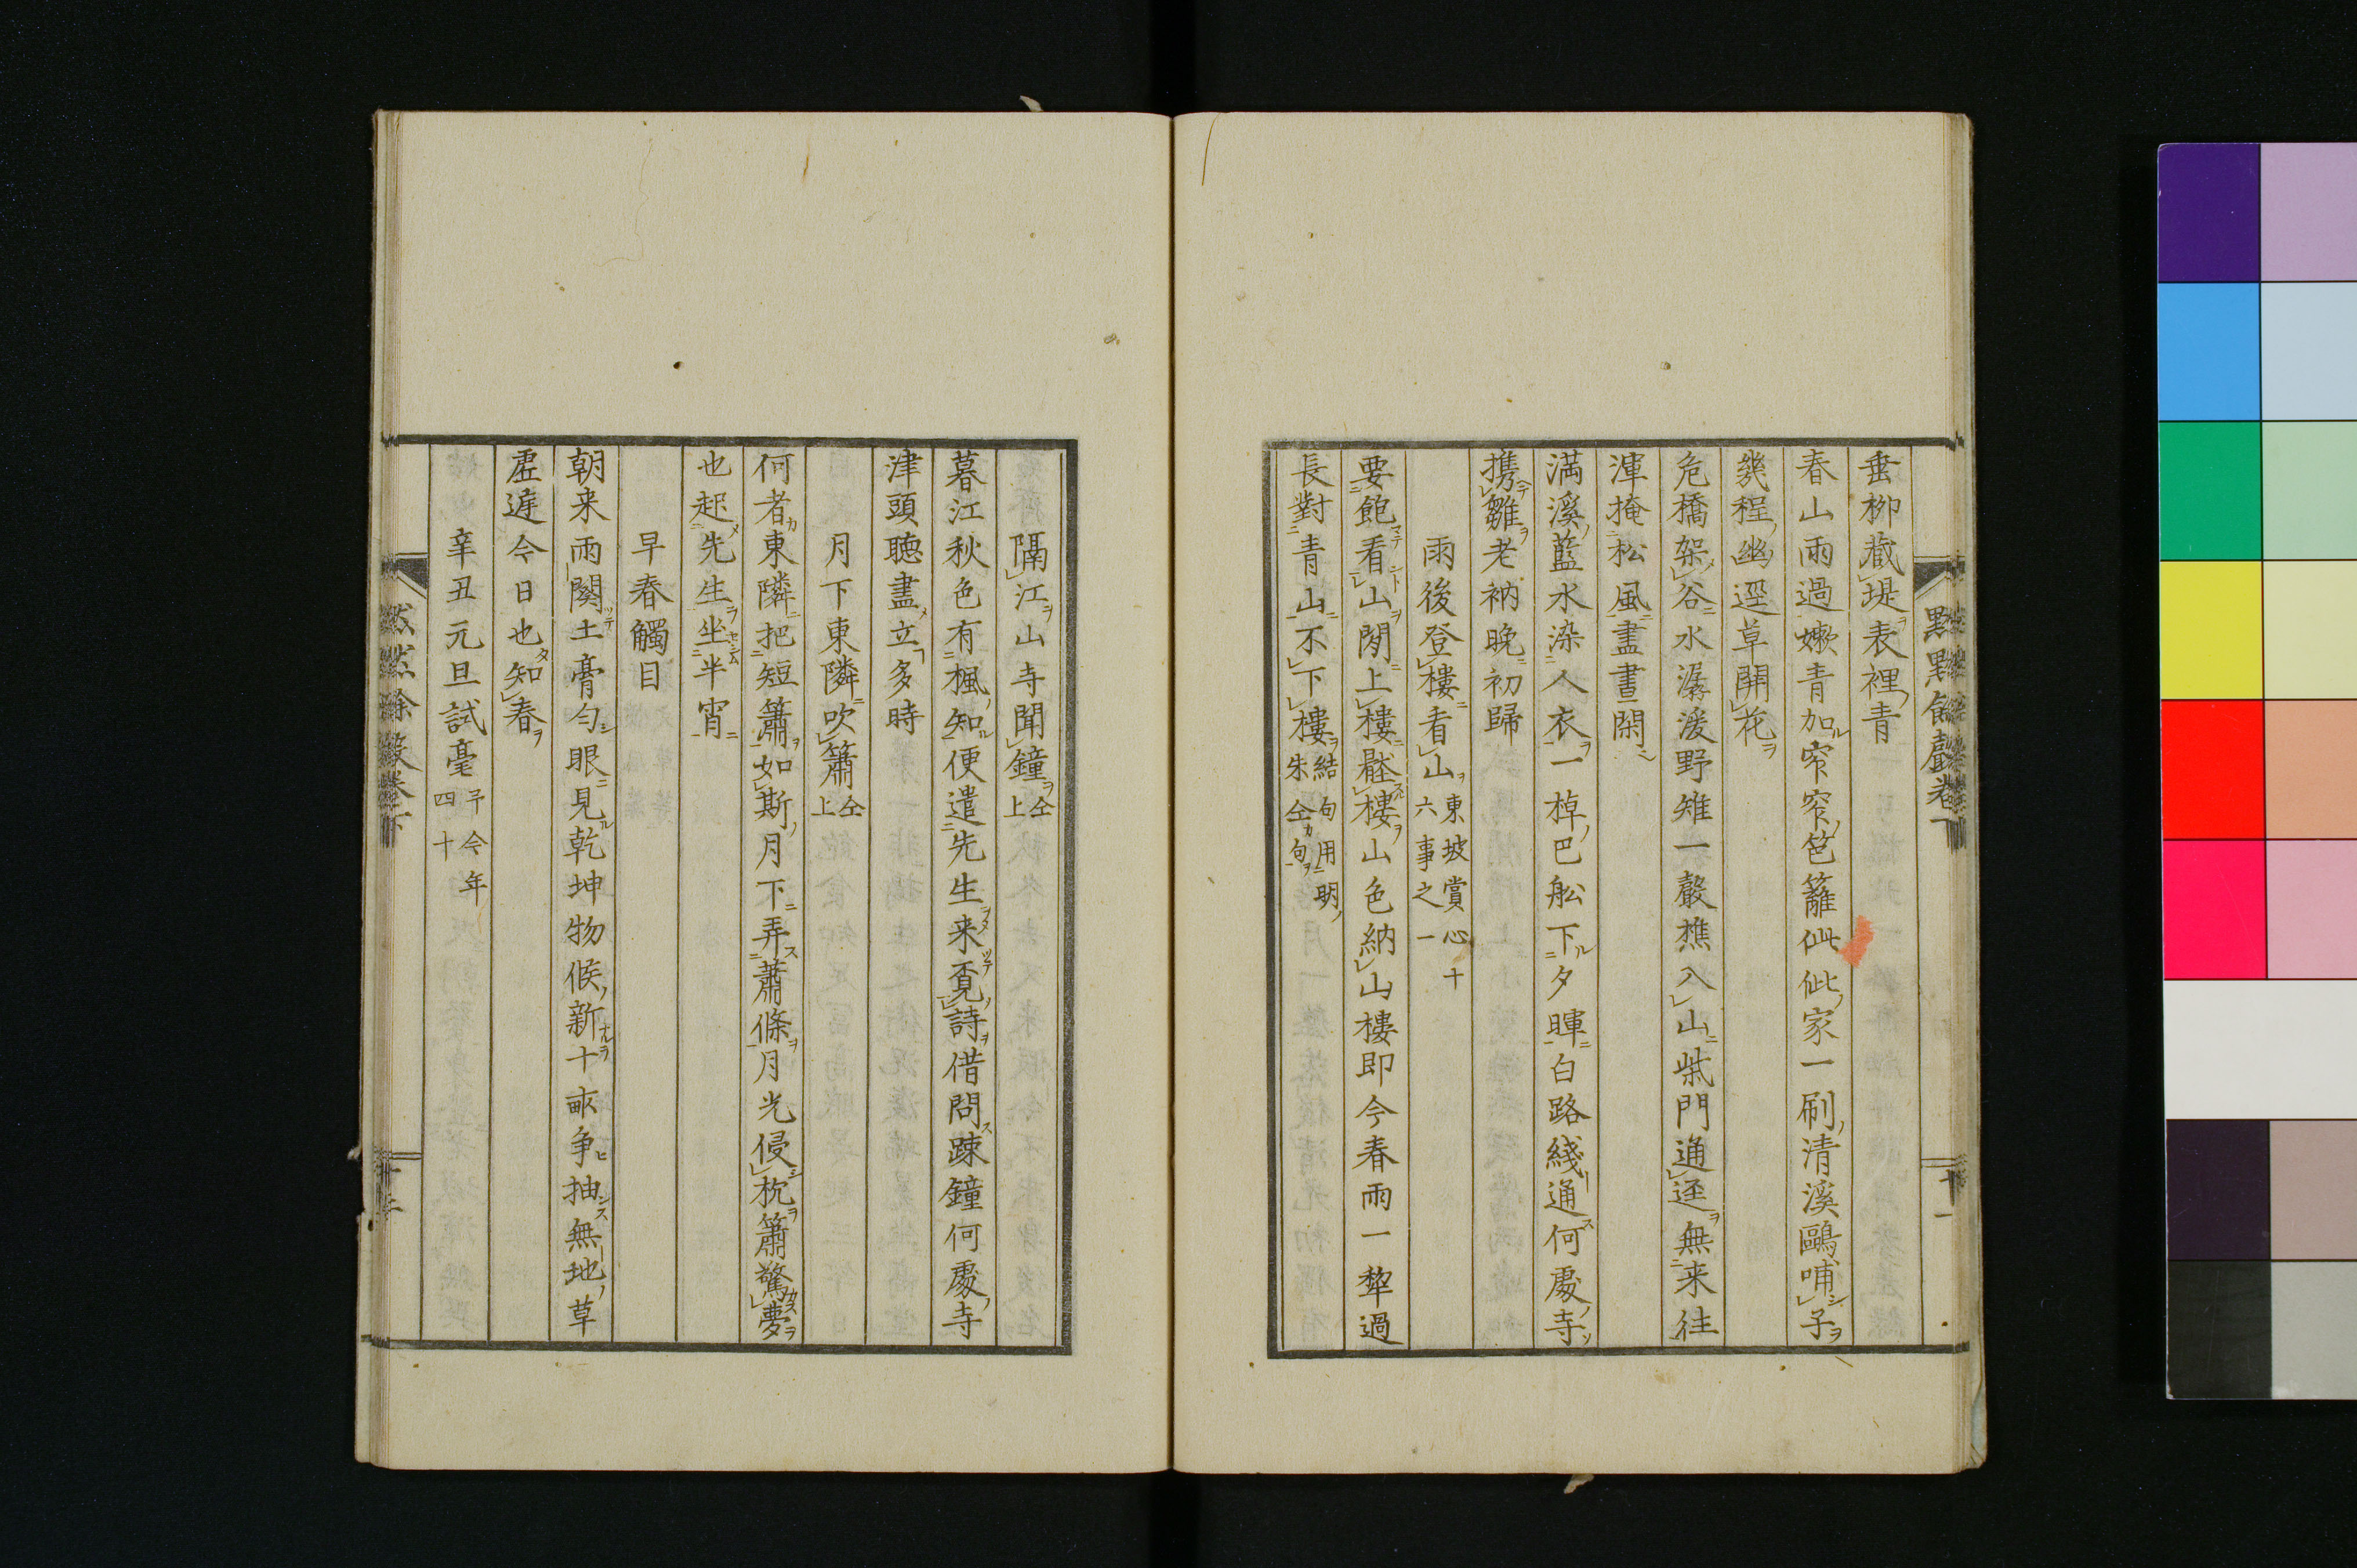 垂柳蔵堤表裡青
春山雨過嫩青加窄窄笆籬仳仳家一刷清溪鷗哺子
幾程幽逕草開花
危橋架谷水潺湲野雉一聲樵入山柴門通逕無来往
渾掩松風盡晝閑
満溪藍水染人衣一棹巴舩下夕暉白路綫通何處寺
携雛老衲晩初歸
雨後登樓看山東坡賞心十六事之一
要飽看山閑上樓樓山色納山樓即今春雨一犂過
長對青山不下樓結句用明朱仝句
隔江山寺聞鐘仝上
暮江秋色有楓知便遣先生来覔詩借問踈鐘何處寺
津頭聴盡立多時
月下東隣吹簫仝上
何者東隣把短簫如斯月下弄蕭條月光侵枕簫驚夢
也起先生坐半宵
早春觸目
朝来雨闋土膏匀眼見乾坤物候新十畝争抽無地草
虚遅今日也知春
辛丑元旦試毫予今年四十